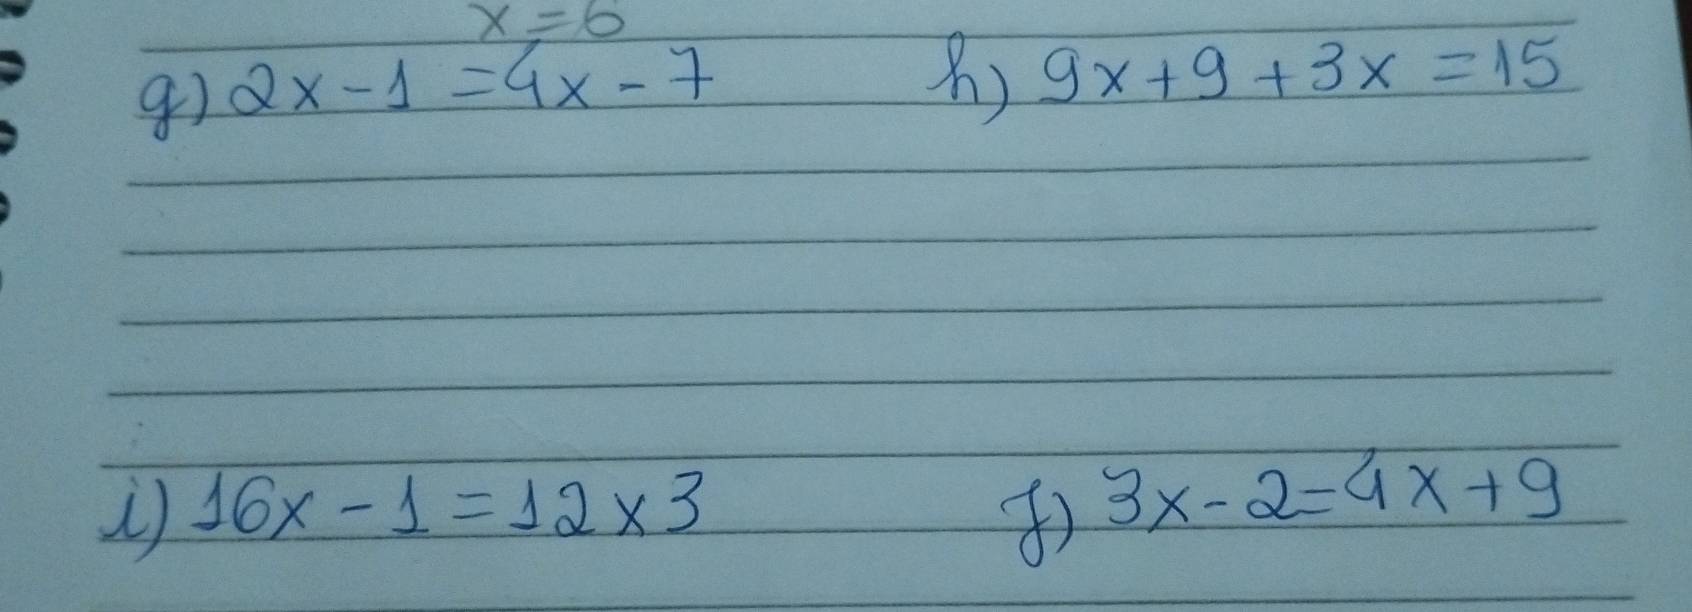 x=6
g) 2x-1=4x-7
h) 9x+9+3x=15
i) 16x-1=12x3
j) 3x-2=4x+9